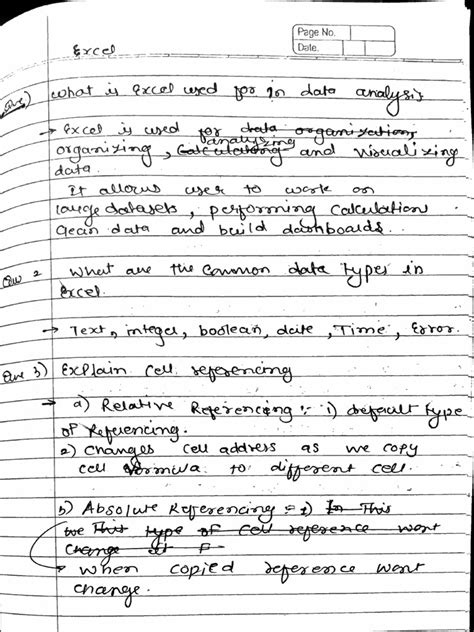 Page No.
Date.
Excel
Que 1) What is Excel used for in data analysis
→ Excel is used for data organization,
organizing, analyzing Calculating and visualizing
data.
It allows user to work on
large datasets, performing calculation
clean data and build dashboards.
Que 2 What are the common data types in
Excel.
→ Text, integer, boolean, date, Time, Error.
Que 3) Explain cell referencing
→ a) Relative Referencing :- i) default type
of Referencing.
2) Changes cell address as we copy
cell formula to different cell.
b) Absolute Referencing :- 1) In This
we This type of cell reference wont
change it F
→ when copied reference wont
change.